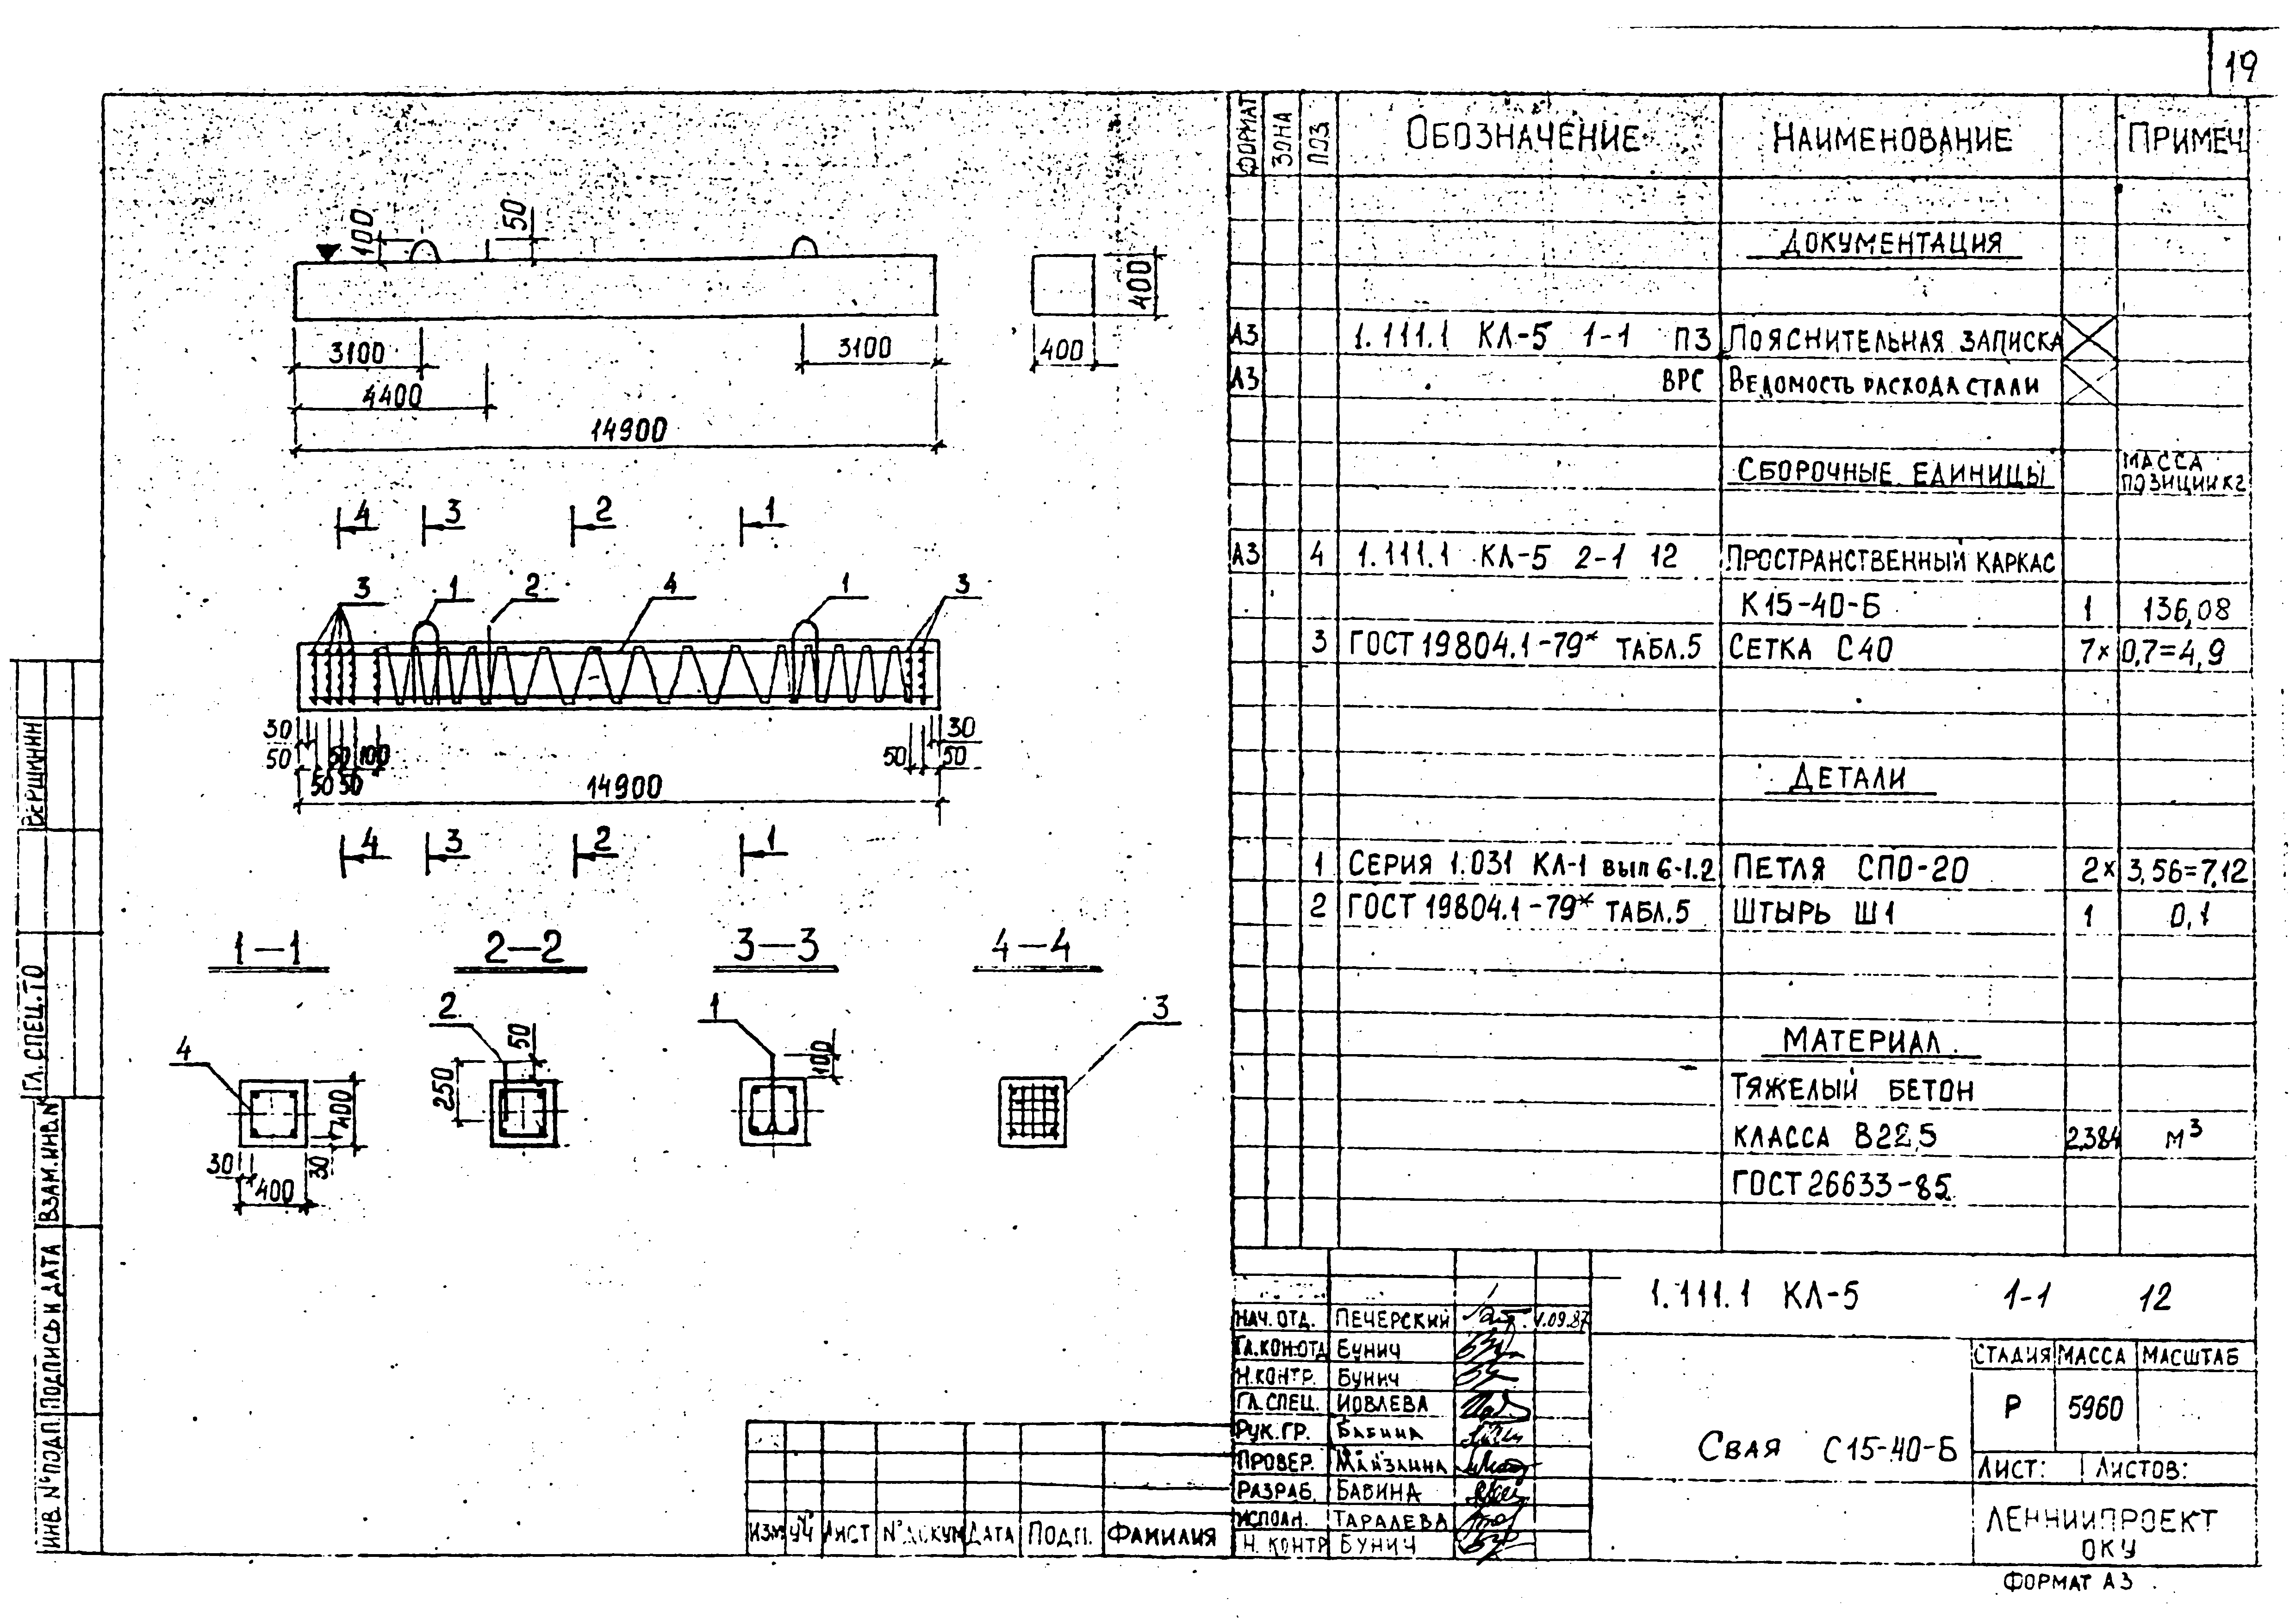 19
ФОРМАТ ЗОНА ПОЗ. ОБОЗНАЧЕНИЕ НАИМЕНОВАНИЕ ПРИМЕЧ.
ДОКУМЕНТАЦИЯ
А3 1.111.1 КЛ-5 1-1 ПЗ ПОЯСНИТЕЛЬНАЯ ЗАПИСКА
А3 ВРС ВЕДОМОСТЬ РАСХОДА СТАЛИ
СБОРОЧНЫЕ ЕДИНИЦЫ МАССА ПОЗИЦИИ КГ
А3 4 1.111.1 КЛ-5 2-1 12 ПРОСТРАНСТВЕННЫЙ КАРКАС
К15-40-Б 1 136,08
3 ГОСТ 19804.1-79* ТАБЛ.5 СЕТКА С40 7× 0,7=4,9
ДЕТАЛИ
1 СЕРИЯ 1.031 КЛ-1 ВЫП 6-1.2 ПЕТЛЯ СПО-20 2× 3,56=7,12
2 ГОСТ 19804.1-79* ТАБЛ.5 ШТЫРЬ Ш1 1 0,1
МАТЕРИАЛ
ТЯЖЕЛЫЙ БЕТОН
КЛАССА В22,5 2,384 м³
ГОСТ 26633-85
100 50 400
3100 3100 400
4400
14900
4 3 2 1
3 1 2 4 1 3
30 30
50 50 100 50 50
50 50
14900
4 3 2 1
1-1 2-2 3-3 4-4
4 2 1 3
50 250 100
400 30 30 400
ВЕРШИНИН
ГЛ.СПЕЦ.ТО
ВЗАМ.ИНВ.№
ПОДПИСЬ И ДАТА
ИНВ.№ПОДП.
ИЗМ УЧ ЛИСТ №ДОКУМ ДАТА ПОДП. ФАМИЛИЯ
1.111.1 КЛ-5 1-1 12
НАЧ. ОТД. ПЕЧЕРСКИЙ 1.09.87
ГЛ.КОН.ОТД БУНИЧ
Н.КОНТР. БУНИЧ
ГЛ.СПЕЦ. ИОВЛЕВА
РУК.ГР. БАБИНА
ПРОВЕР.
РАЗРАБ. БАБИНА
ИСПОЛН. ТАРАЛЕВА
Н. КОНТР БУНИЧ
СВАЯ С15-40-Б
СТАДИЯ МАССА МАСШТАБ
Р 5960
ЛИСТ: ЛИСТОВ:
ЛЕННИИПРОЕКТ
ОКУ
ФОРМАТ А3